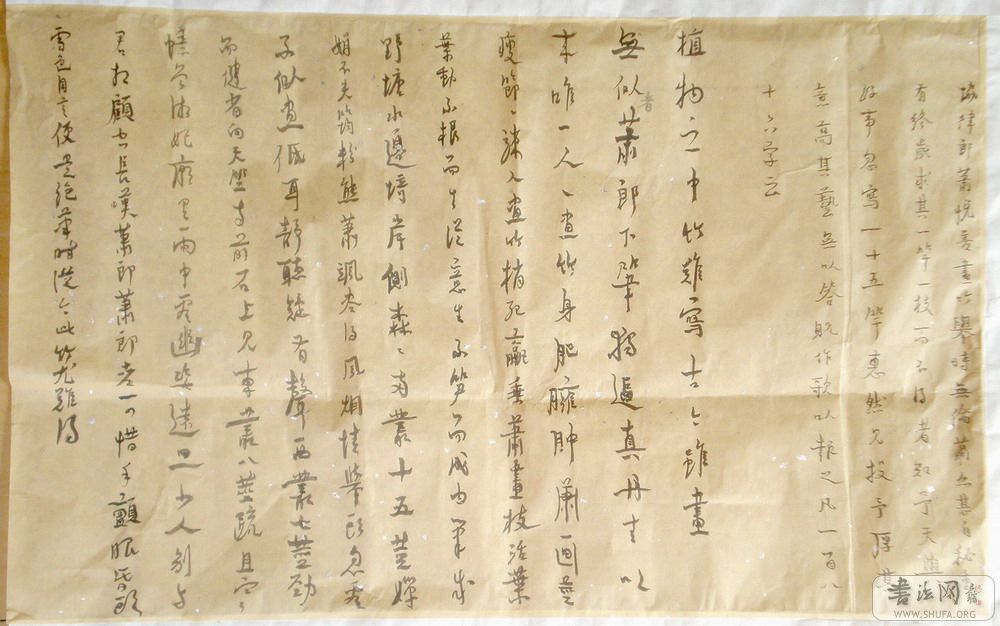 協律郎蕭悦善畫竹舉時無倫蕭亦甚自秘
有終歲求其一竿一枝而不得者知予天與
好事忽寫一十五竿惠然見投予厚其
意高其藝無以答貺作歌以報之凡一百八
十六字云
植物之中竹難寫古今雖畫
無似者蕭郎下筆獨逼真丹青以
来唯一人人畫竹身肥臃肿蕭画莖
瘦節節竦人畫竹梢死羸垂蕭畫枝活葉
葉動不根而生從意生不笋而成由筆成
野塘水邊碕岸側森森兩叢十五莖嬋
娟不失筠粉態蕭颯盡得風烟情舉頭忽看
不似畫低耳静聽疑有聲西叢七莖勁
而健省向天竺寺前石上見東叢八莖疏且寒
憶曾湘妃廟里雨中看幽姿遠思少人别与
君相顧空長嘆蕭郎蕭郎老可惜手顫眼昏頭
雪色自言便是絶筆時從今此竹尤難得
书法网
WWW.SHUFA.ORG